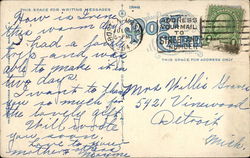 THIS SPACE FOR WRITING MESSAGES
How is Irene
this warm day
I had a lovely
trip and was
able to make it in
two days.
I want to thank
you so much for
the lovely gift.
Will write
you soon.
Love to your
mother
ADDRESS
YOUR MAIL
TO
STREET AND
NUMBER
THIS SPACE FOR ADDRESS ONLY
Miss Willis Grove
5421 Vinewood
Detroit
Mich.